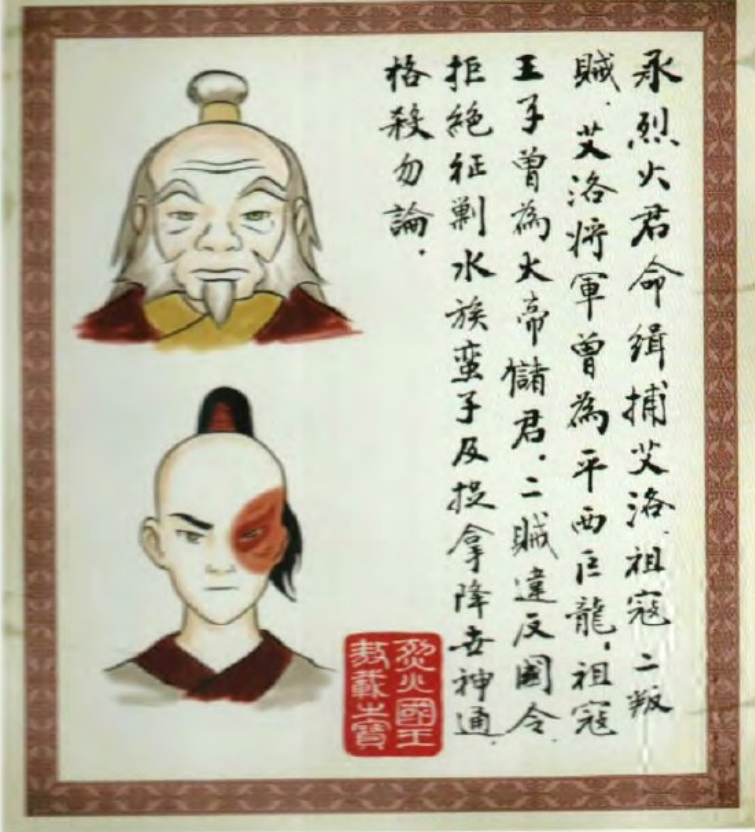 承烈火君命緝捕艾洛.祖寇二叛
賊.艾洛將軍曾為平西巨龍.祖寇
王子曾為火帝儲君.二賊違反國令.
拒絕征剿水族蛮子及捉拿降世神通.
格殺勿論.
烈火國王
敖載之寶